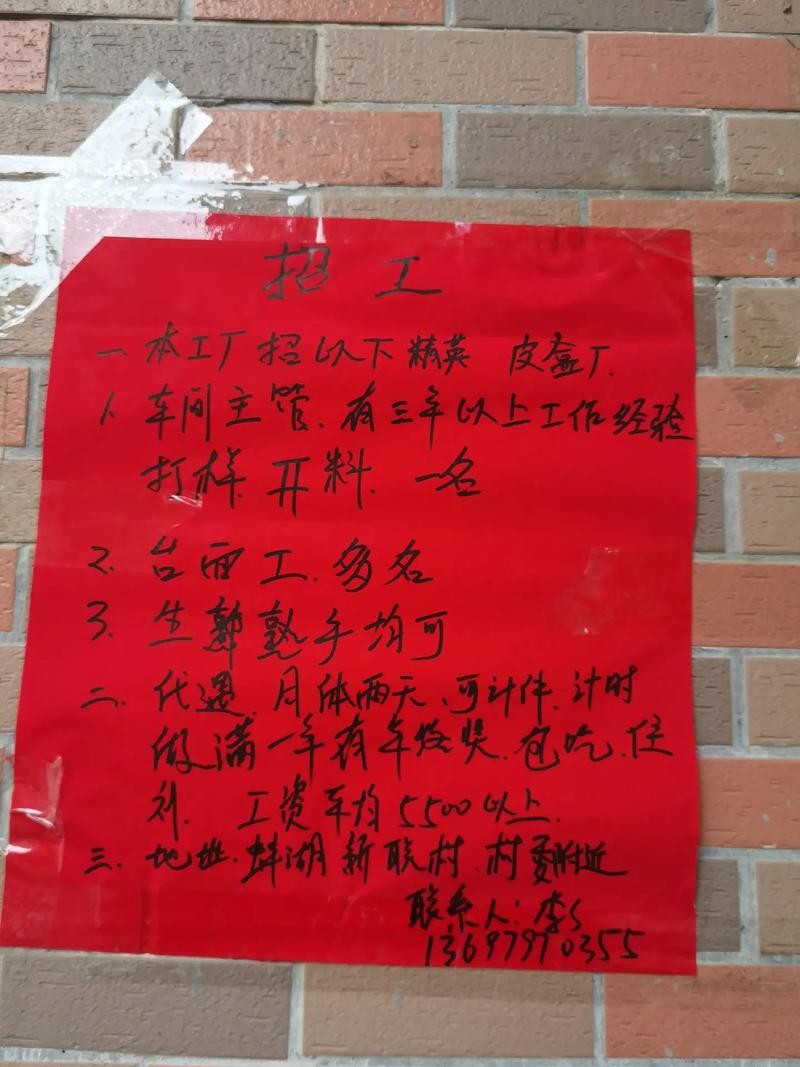 招工
一.本工厂招以下精英 皮盒厂.
1.车间主管、有三年以上工作经验
打样.开料.一名
2.台面工.多名
3.生熟手均可
二.代遇.月休两天、可计件.计时
做满一年有年终奖.包吃.住
工资平均5500以上.
三.地址.蚌湖新联村.村委附近
联系人:李
13697970355